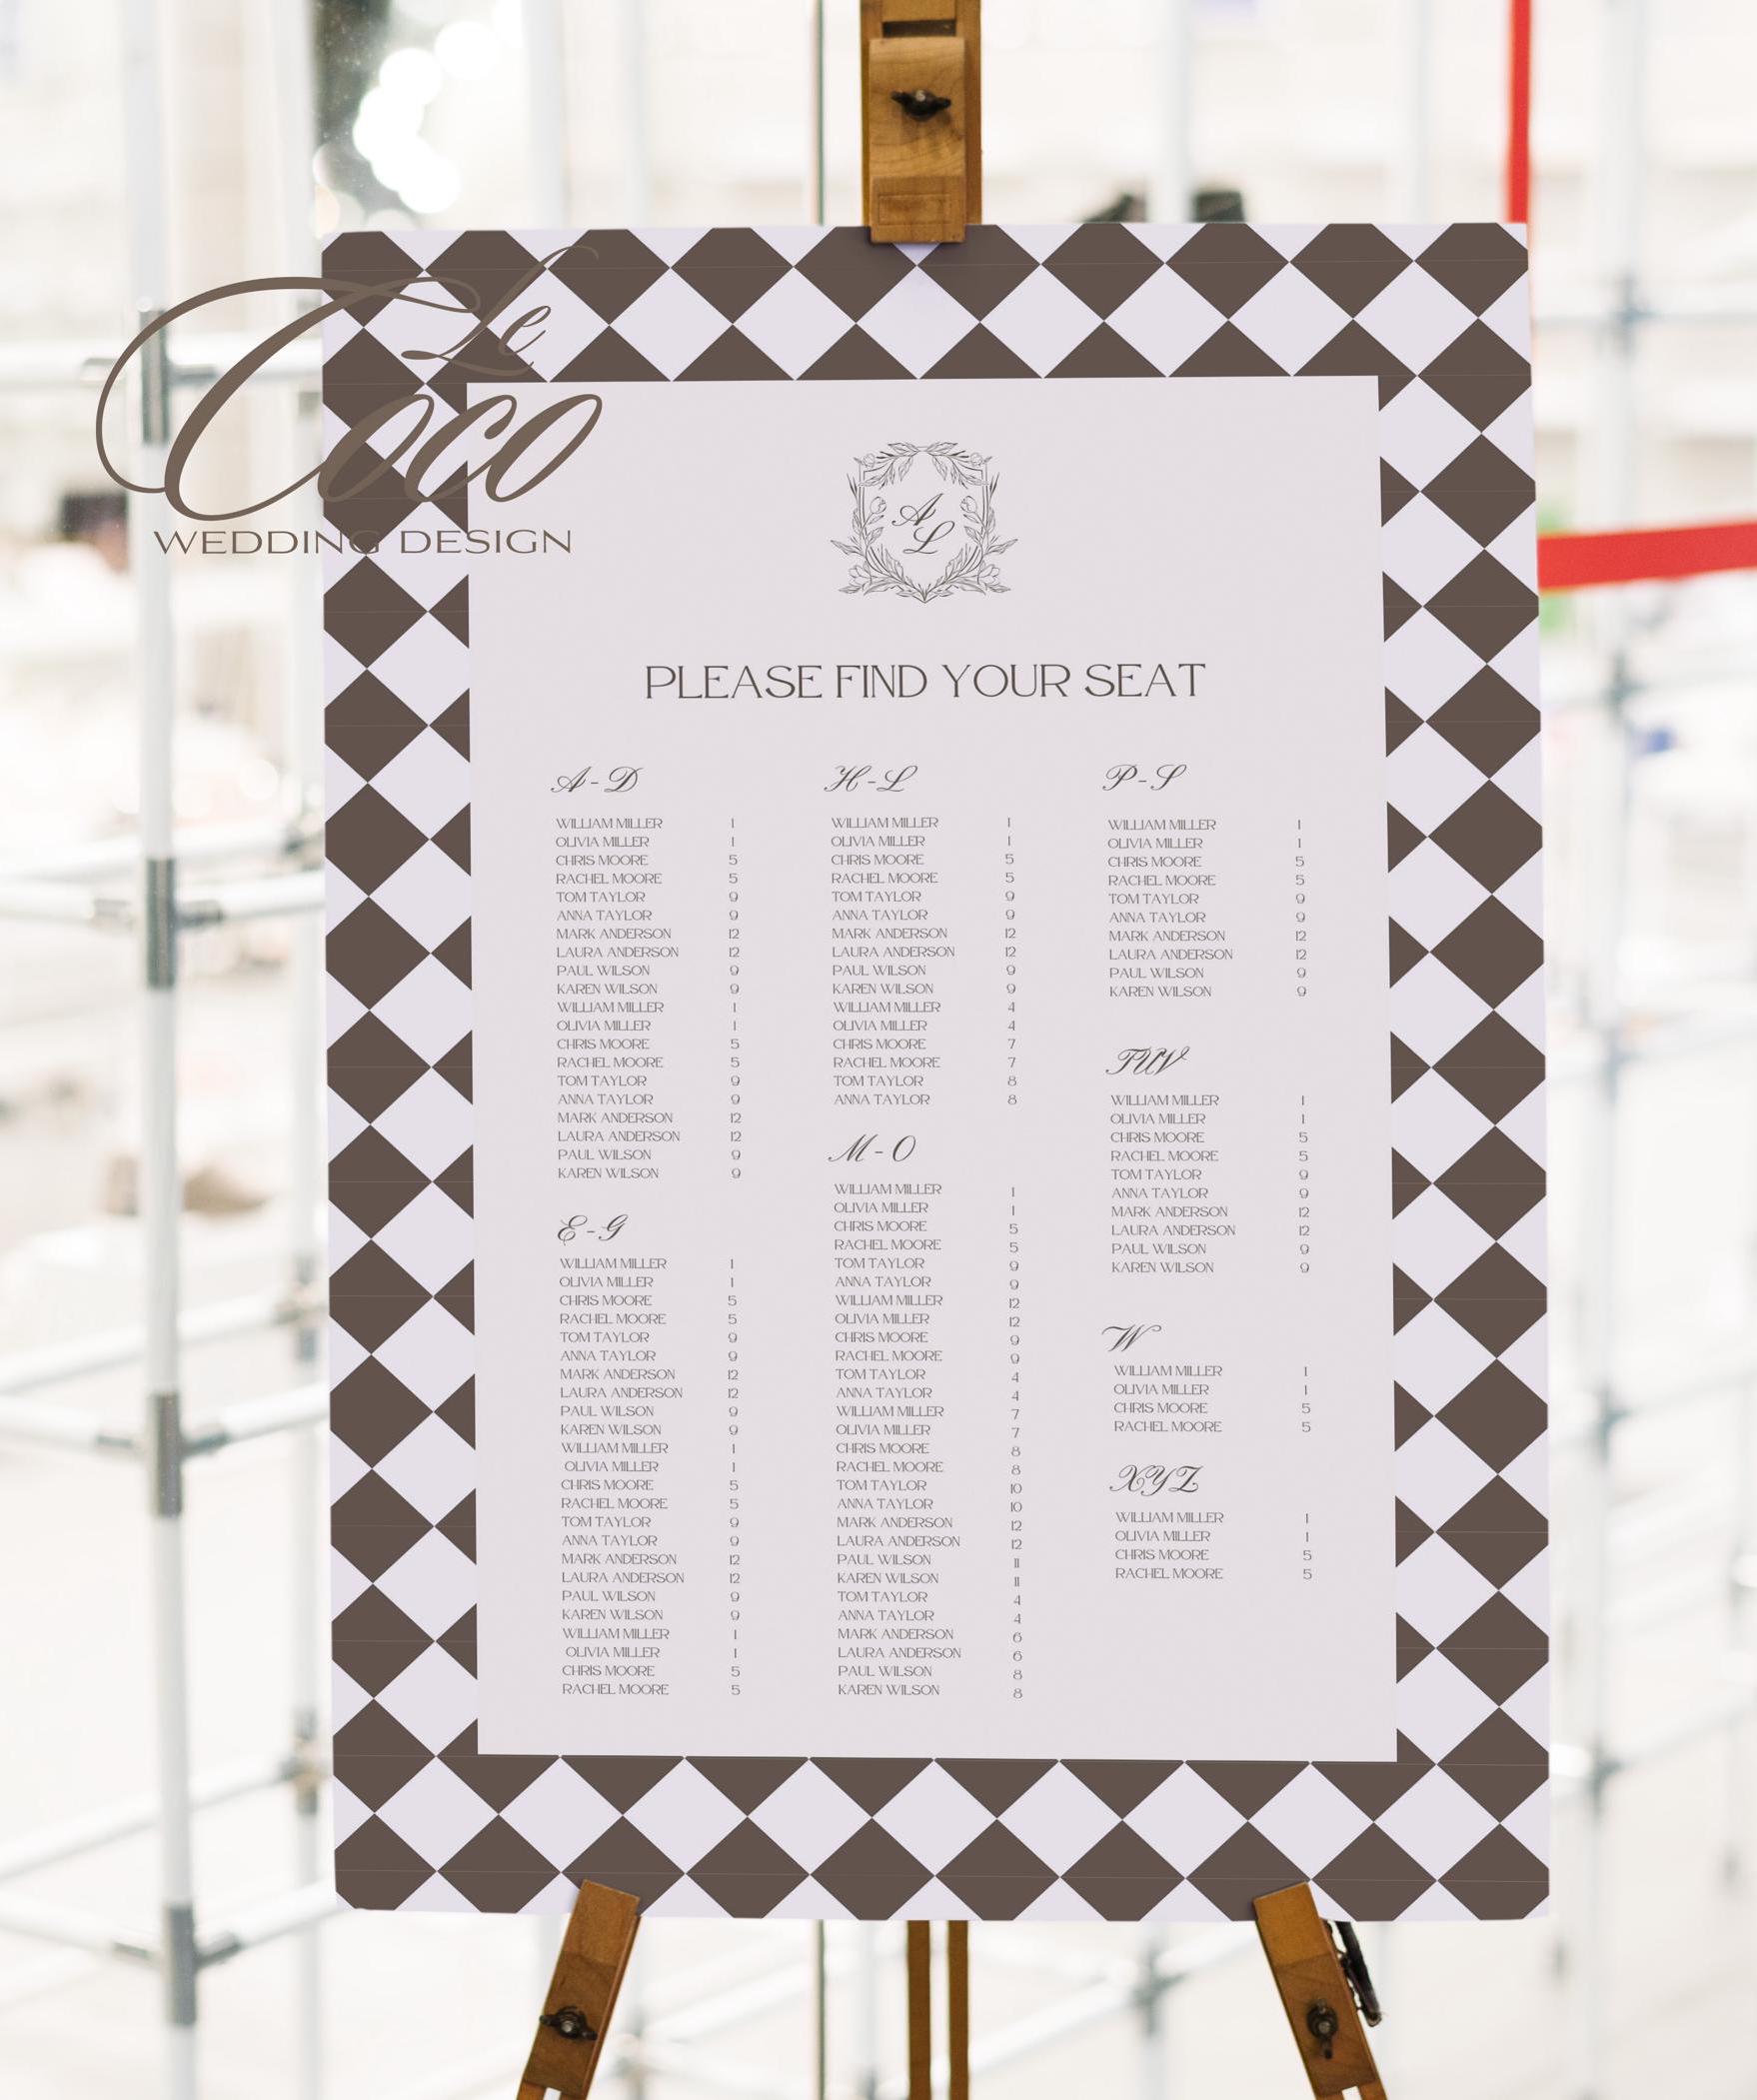 Le
Coco
WEDDING DESIGN
A
L
PLEASE FIND YOUR SEAT
A-D
WILLIAM MILLER 1
OLIVIA MILLER 1
CHRIS MOORE 5
RACHEL MOORE 5
TOM TAYLOR 9
ANNA TAYLOR 9
MARK ANDERSON 12
LAURA ANDERSON 12
PAUL WILSON 9
KAREN WILSON 9
WILLIAM MILLER 1
OLIVIA MILLER 1
CHRIS MOORE 5
RACHEL MOORE 5
TOM TAYLOR 9
ANNA TAYLOR 9
MARK ANDERSON 12
LAURA ANDERSON 12
PAUL WILSON 9
KAREN WILSON 9
E-G
WILLIAM MILLER 1
OLIVIA MILLER 1
CHRIS MOORE 5
RACHEL MOORE 5
TOM TAYLOR 9
ANNA TAYLOR 9
MARK ANDERSON 12
LAURA ANDERSON 12
PAUL WILSON 9
KAREN WILSON 9
WILLIAM MILLER 1
OLIVIA MILLER 1
CHRIS MOORE 5
RACHEL MOORE 5
TOM TAYLOR 9
ANNA TAYLOR 9
MARK ANDERSON 12
LAURA ANDERSON 12
PAUL WILSON 9
KAREN WILSON 9
WILLIAM MILLER 1
OLIVIA MILLER 1
CHRIS MOORE 5
RACHEL MOORE 5
H-L
WILLIAM MILLER 1
OLIVIA MILLER 1
CHRIS MOORE 5
RACHEL MOORE 5
TOM TAYLOR 9
ANNA TAYLOR 9
MARK ANDERSON 12
LAURA ANDERSON 12
PAUL WILSON 9
KAREN WILSON 9
WILLIAM MILLER 4
OLIVIA MILLER 4
CHRIS MOORE 7
RACHEL MOORE 7
TOM TAYLOR 8
ANNA TAYLOR 8
M-O
WILLIAM MILLER 1
OLIVIA MILLER 1
CHRIS MOORE 5
RACHEL MOORE 5
TOM TAYLOR 9
ANNA TAYLOR 9
WILLIAM MILLER 12
OLIVIA MILLER 12
CHRIS MOORE 9
RACHEL MOORE 9
TOM TAYLOR 4
ANNA TAYLOR 4
WILLIAM MILLER 7
OLIVIA MILLER 7
CHRIS MOORE 8
RACHEL MOORE 8
TOM TAYLOR 10
ANNA TAYLOR 10
MARK ANDERSON 12
LAURA ANDERSON 12
PAUL WILSON 11
KAREN WILSON 11
TOM TAYLOR 4
ANNA TAYLOR 4
MARK ANDERSON 6
LAURA ANDERSON 6
PAUL WILSON 8
KAREN WILSON 8
P-S
WILLIAM MILLER 1
OLIVIA MILLER 1
CHRIS MOORE 5
RACHEL MOORE 5
TOM TAYLOR 9
ANNA TAYLOR 9
MARK ANDERSON 12
LAURA ANDERSON 12
PAUL WILSON 9
KAREN WILSON 9
TUV
WILLIAM MILLER 1
OLIVIA MILLER 1
CHRIS MOORE 5
RACHEL MOORE 5
TOM TAYLOR 9
ANNA TAYLOR 9
MARK ANDERSON 12
LAURA ANDERSON 12
PAUL WILSON 9
KAREN WILSON 9
W
WILLIAM MILLER 1
OLIVIA MILLER 1
CHRIS MOORE 5
RACHEL MOORE 5
XYZ
WILLIAM MILLER 1
OLIVIA MILLER 1
CHRIS MOORE 5
RACHEL MOORE 5